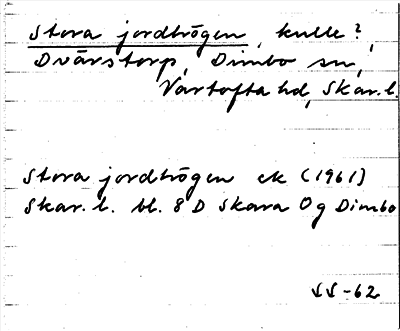 Stora jordhögen, kulle?,
Dvärstorp, Dimbo sn,
Vartofta hd, Skar.l.
Stora jordhögen ek (1961)
Skar.l. bl. 8 D Skara Og Dimbo
SS-62